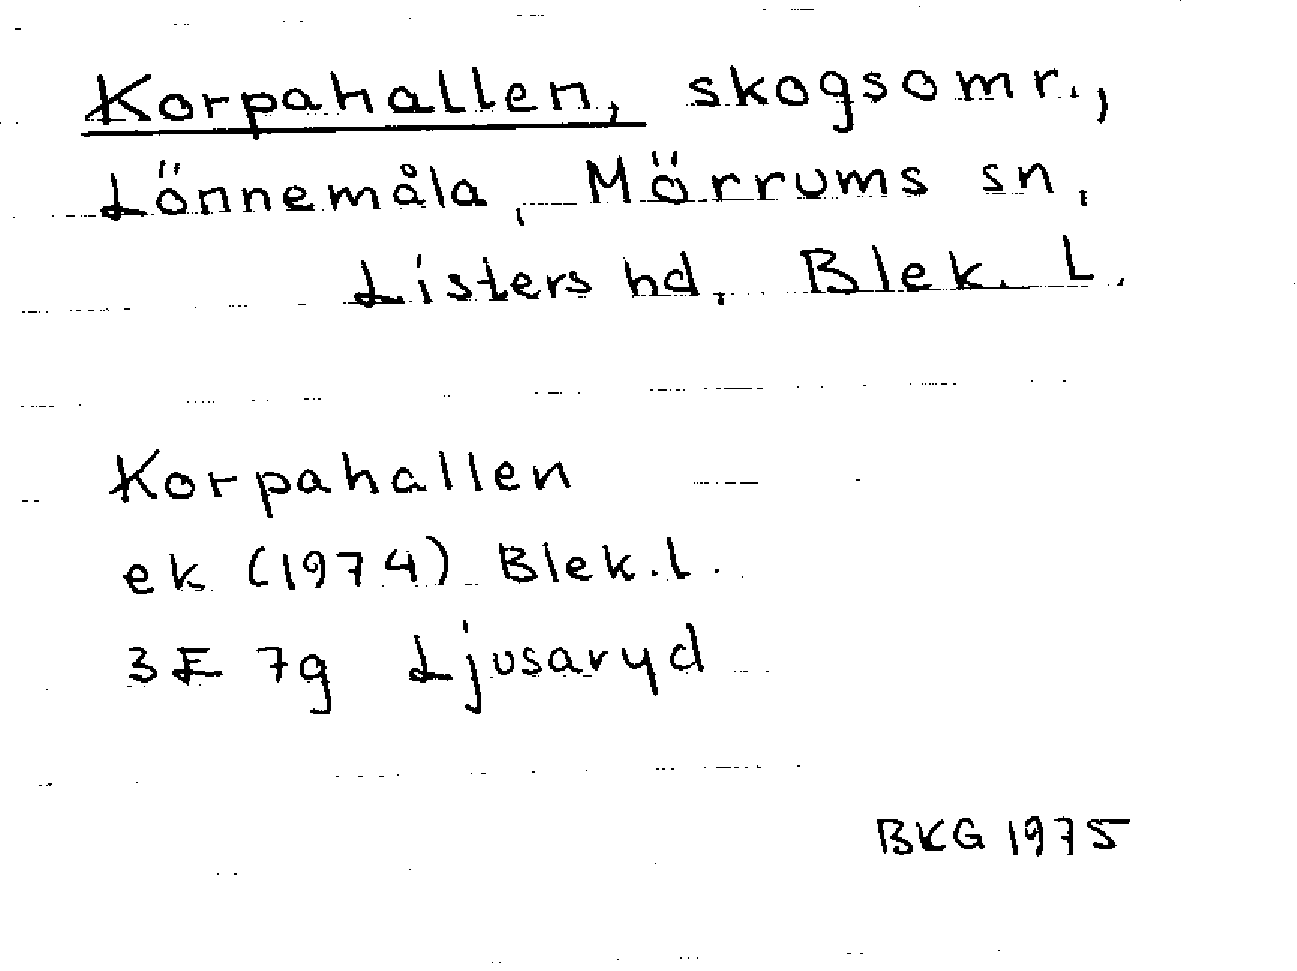 Korpahallen, skogsomr.,
Lönnemåla, Mörrums sn,
Listers hd, Blek. L.
Korpahallen
ek (1974) Blek.l.
3E 7g Ljusaryd
BKG 1975